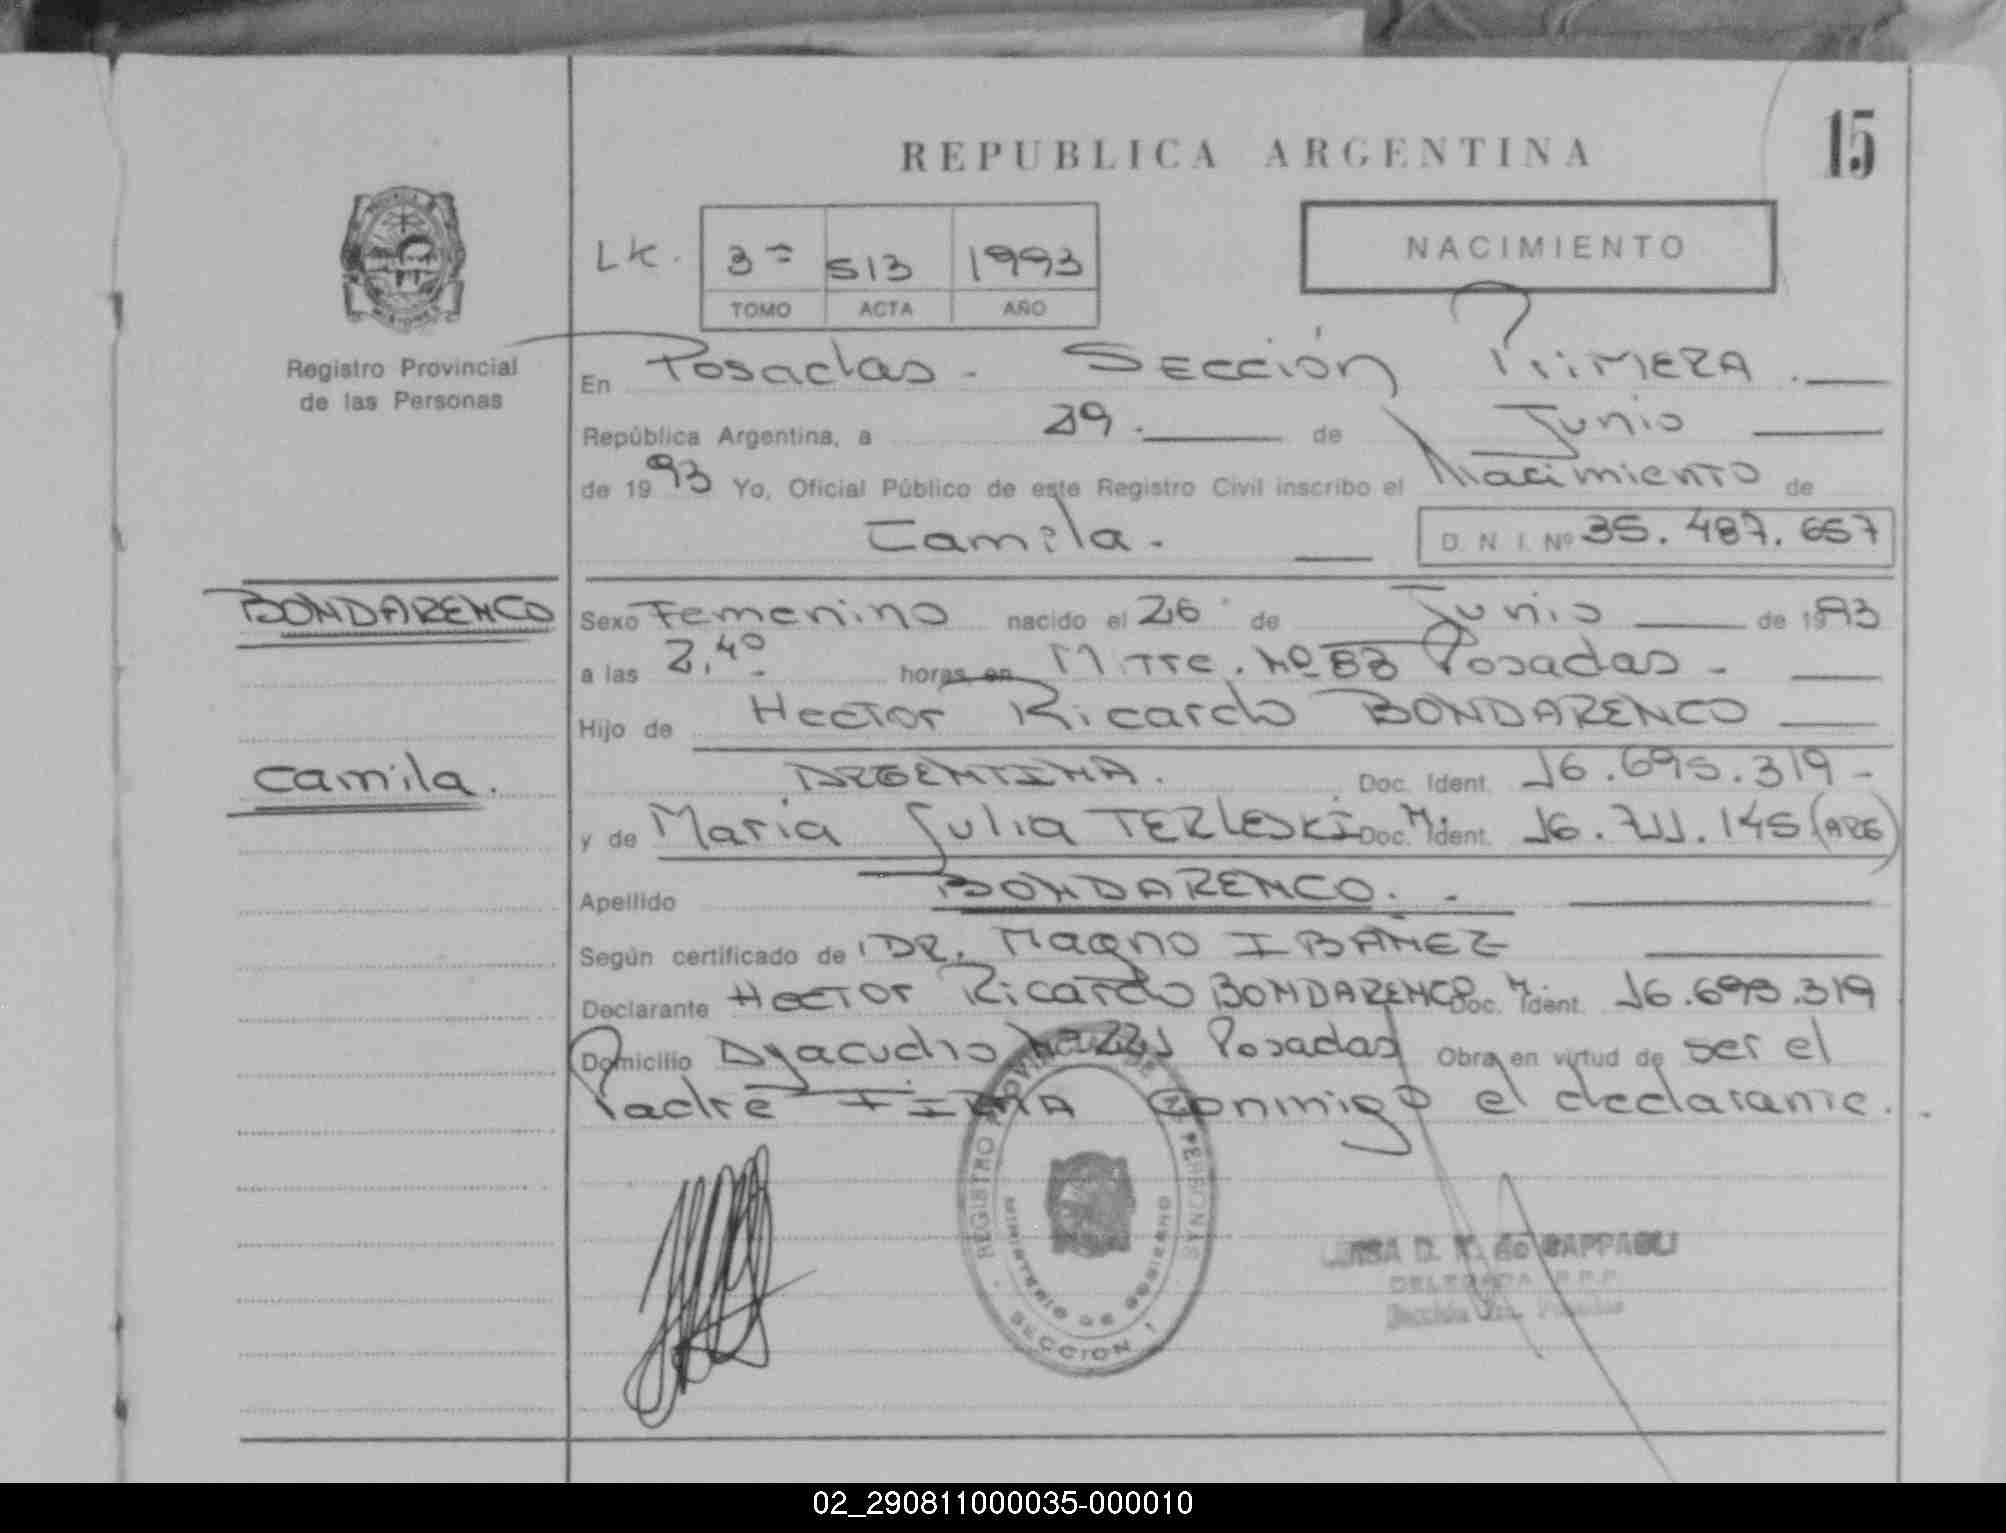 REPUBLICA ARGENTINA
15
NACIMIENTO
LK. 3ª 513 1993
TOMO ACTA AÑO
Registro Provincial
de las Personas
En Posadas - Sección Primera.
República Argentina, a 29. de Junio
de 1993 Yo, Oficial Público de este Registro Civil inscribo el Nacimiento de
Camila.
D. N. I. Nº 35.487.657
BONDARENCO
Sexo Femenino nacido el 26 de Junio de 1993
a las 2,40 horas en Mitre. Nº 83 Posadas -
Hijo de Hector Ricardo BONDARENCO
Camila.
ARGENTINA. Doc. Ident. 16.695.319 -
y de Maria Julia TERLESKI Doc. M. Ident. 16.711.145 (ARG)
Apellido BONDARENCO. -
Según certificado de DR. Magno IBAÑEZ
Declarante Hector Ricardo BONDARENCO Doc. M. Ident. 16.695.319
Domicilio Ayacucho Nº 221 Posadas Obra en virtud de ser el
Padre FIRMA Conmigo el declarante.
REGISTRO PROVINCIAL DE LAS PERSONAS
MINISTERIO DE GOBIERNO
SECCION 1
D. de GAPPAGLI
DELEGADA R.P.P.
Sección
02_290811000035-000010